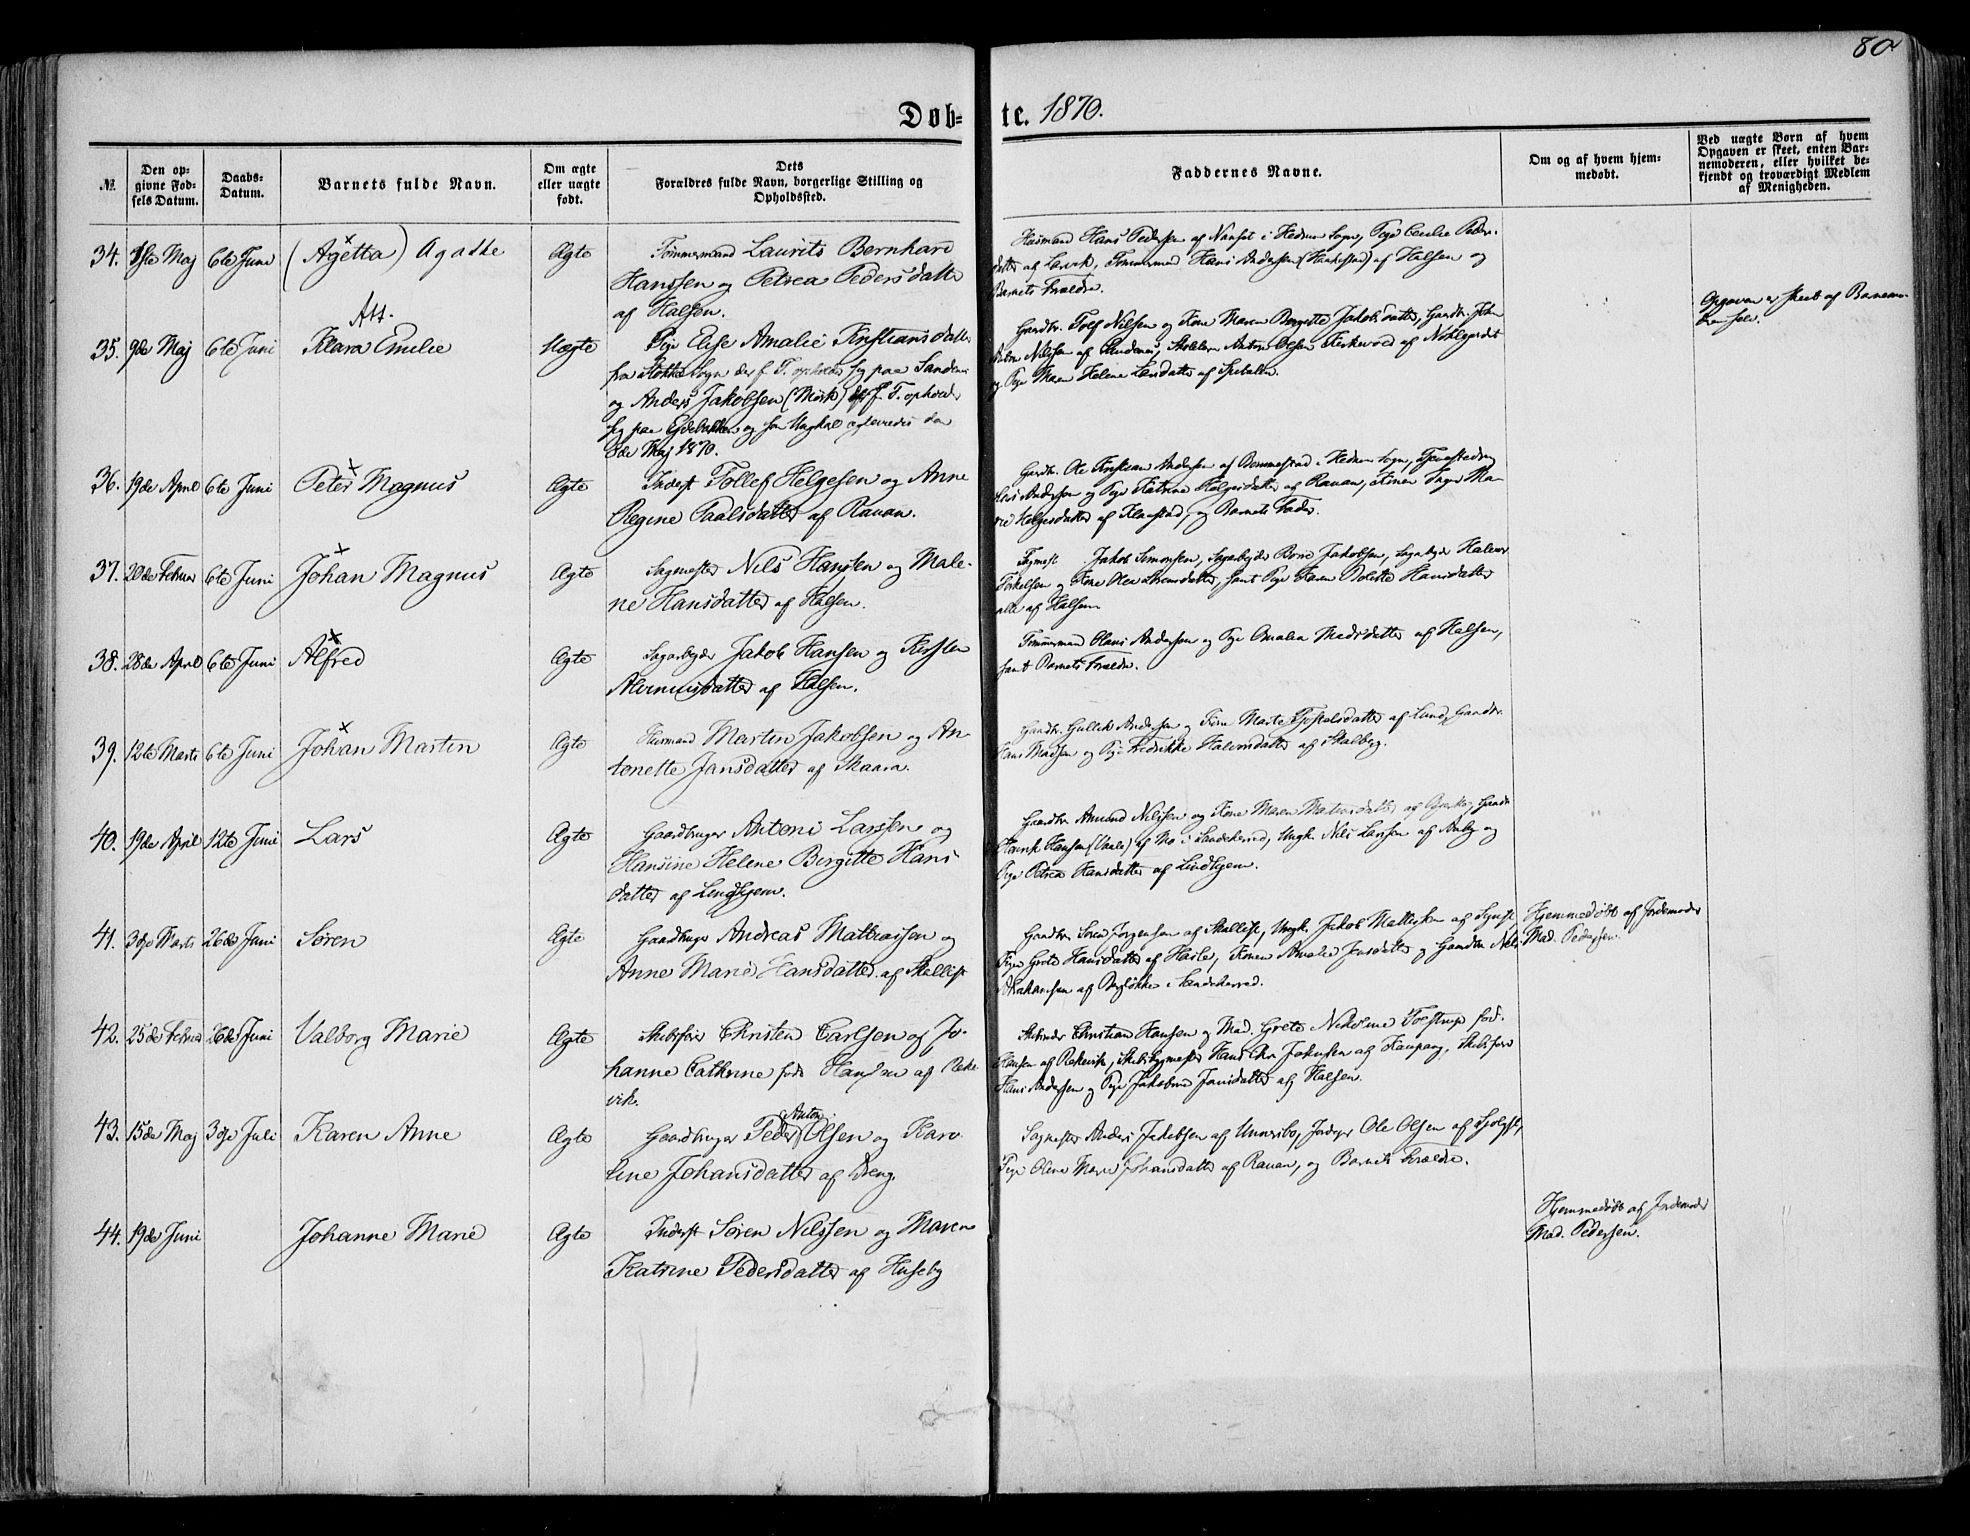 80
Døb-
te. 1870.
№.
Den op-
givne Fød-
sels Datum.
Daabs-
Datum.
Barnets fulde Navn.
Om ægte
eller uægte
født.
Dets
Forældres fulde Navn, borgerlige Stilling og
Opholdssted.
Faddernes Navne.
Om og af hvem hjem-
medøbt.
Ved uægte Børn af hvem
Opgaven er skeet, enten Bar-
nemoderen, eller hvilket be-
kjendt og troværdigt Medlem
af Menigheden.
34. Maj 6te Juni (Agetta) Agathe Ægte Tømmermand Laurits Bernhard
Hanssen og Petrea Pedersdatter
af Halsen.
Husmand Hans Pedersen af Nanset i Hedrum Sogn, Pige Cecilie Peders-
datter af Lervik, Tømmermand Hans Andersen af Halsen og
Barnets Forældre.
Att.
35. 9de Maj 6te Juni Klara Emilie Uægte Pige Elise Amalie Kristiansdatter
fra Stokke Sogn der f. T. opholder sig paa Sandenes
og Anders Jakobsen (Mørk) der f. T. opholder
sig paa og som Ungkal ægteviedes den
8de Maj 1870.
Gardbr. Tolf Nilsen og Kone Maren Birgitte Jakobsdatter, Gardbr. John
Nilsen af Sandenes, Anton Olsen af
og Pige Maren Helene Larsdatter af
Opgaven er skeet af Barnemo-
deren selv.
36. 19de April 6te Juni Peter Magnus Ægte Inderst Tollef Helgesen og Anne
Regine Paalsdatter af Rauan.
Gardbr. Ole Kristian Andersen af Bommestad i Hedrum Sogn,
Andersen og Pige Katrine Helgesdatter af Rauan, Konen Inger Ma-
rie Helgesdatter af Klaastad, og Barnets Fader.
37. 20de Februar 6te Juni Johan Magnus Ægte Sagmester Nils Hansen og Male-
ne Hansdatter af Halsen.
Jakob Simonsen, Sagarbejder Børre Jakobsen, Sagarbejder Halvor
Torkelsen og Kone samt Pige Karen Bolette Hansdatter
alle af Halsen
38. 28de April 6te Juni Alfred Ægte Sagarbejder Jakob Hansen og Kirsten
af Halsen.
Tømmermand Hans Andersen og Pige Amalia Madsdatter af Halsen,
samt Barnets Forældre.
39. 12te Marts 6te Juni Johan Martin Ægte Husmand Martin Jakobsen og An-
tonette Jansdatter af Skaara.
Gardbr. Gullik Andersen og Kone Marte af Lund, Gardbr.
Hans Madsen og Pige Fredrikke Halvorsdatter af Skalberg.
40. 19de April 12te Juni Lars Ægte Gaardbruger Antoni Larssen og
Hansine Helene Birgitte Hans
datter af Lindhjem.
Gardbr. Amund Nilsen og Kone Maren af Gardbr.
Hansen af No i Sandeherred, Ungk. Nils Larsen af og
Pige Petrea Hansdatter af Lindhjem.
41. 3die Marts 26de Juni Søren Ægte Gaardbruger Andreas Mathiassen og
Anne Marie Hansdatter af Skallist
Gardbr. Søren Jørgensen af Skallist, Ungk. Jakob af
Pige Grete Hansdatter af Hasle, Konen Amalie Jensdatter og Gardbr. Nils
Abrahamsen af i Sandeherred.
Hjemmedøbt af Jordemoder
Mad. Pedersen.
42. 25de Februar 26de Juni Valborg Marie Ægte Skibsfører Christen Carlsen og Jo-
hanne Cathrine født Hansen af Reke
vik.
Christian Hansen og Mad. Grete Nikoline Toestrup fød.
Hansen af Rekevik, Skibsbygmester Hans Chr. Jakobsen af Kaupang, Skibsfører
Hans Andersen og Pige Jakobine Jansdatter af Halsen.
43. 15de Maj 3die Juli Karen Anne Ægte Gaardbruger Peder Anton Olsen og Karo
line Johansdatter af Ræng.
Sagmester Anders Jakobsen af Unneribo, Ole Olsen af
Pige Olene Marie Johansdatter af Rauan, og Barnets Forældre.
44. 19de Juni Johanne Marie Ægte Inderst Søren Nilssen og Maren
Katrine Pedersdatter af Huseby
Hjemmedøbt af Jordemoder
Mad. Pedersen.